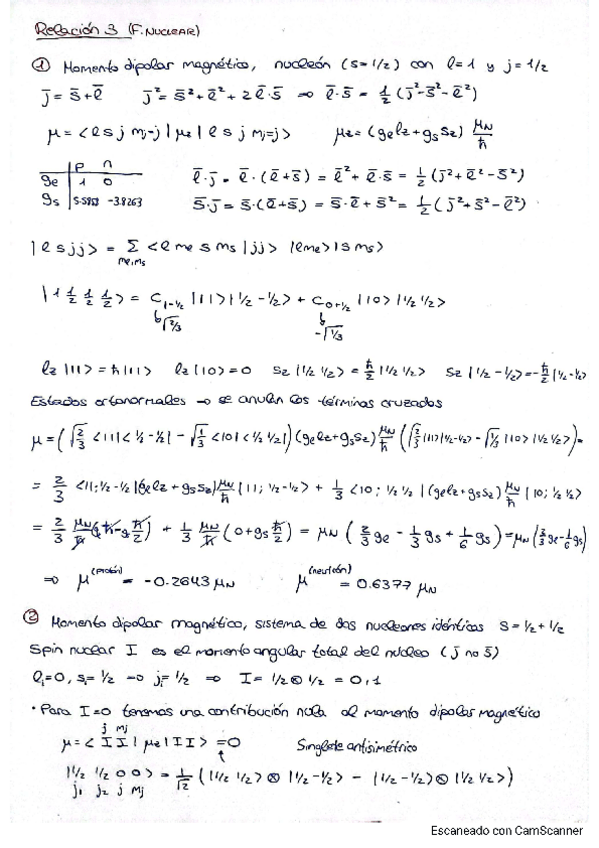 Relación 3 (F. NUCLEAR)
① Momento dipolar magnético, nucleón (s=1/2) con l=1 y j=1/2
j̄ = s̄ + l̄   j̄² = s̄² + l̄² + 2 l̄·s̄ ⇒ l̄·s̄ = 1/2 (j̄² - s̄² - l̄²)
μ = <l s j mj=j | μz | l s j mj=j>   μz = (gl lz + gs sz) μN/ħ
p n
gl 1 0
gs 5.5853 -3.8263
l̄·j̄ = l̄·(l̄+s̄) = l̄² + l̄·s̄ = 1/2 (j̄² + l̄² - s̄²)
s̄·j̄ = s̄·(l̄+s̄) = s̄·l̄ + s̄² = 1/2 (j̄² + s̄² - l̄²)
|l s j j> = Σ <l ml s ms | j j> |l ml> |s ms>
ml,ms
|1 1/2 1/2 1/2> = C1-1/2 |11>|1/2 -1/2> + C0+1/2 |10>|1/2 1/2>
√2/3   -√1/3
lz |11> = ħ|11>   lz |10> = 0   sz |1/2 1/2> = ħ/2 |1/2 1/2>   sz |1/2 -1/2> = -ħ/2 |1/2 -1/2>
Estados ortonormales → se anulan los términos cruzados
μ = (√2/3 <11|<1/2 -1/2| - √1/3 <10|<1/2 1/2|) (gl lz + gs sz) μN/ħ (√2/3 |11>|1/2 -1/2> - √1/3 |10>|1/2 1/2>) =
= 2/3 <11; 1/2 -1/2 |(gl lz + gs sz) μN/ħ | 11; 1/2 -1/2> + 1/3 <10; 1/2 1/2 | (gl lz + gs sz) μN/ħ | 10; 1/2 1/2>
= 2/3 μN/ħ (gl ħ - gs ħ/2) + 1/3 μN/ħ (0 + gs ħ/2) = μN (2/3 gl - 1/3 gs + 1/6 gs) = μN (2/3 gl - 1/6 gs)
⇒ μ(protón) = -0.2643 μN   μ(neutrón) = 0.6377 μN
② Momento dipolar magnético, sistema de dos nucleones idénticos S = 1/2 + 1/2
Spin nuclear I es el momento angular total del núcleo (j̄ no s̄)
li=0, si=1/2 → ji=1/2 ⇒ I = 1/2 ⊗ 1/2 = 0,1
· Para I=0 tenemos una contribución nula al momento dipolar magnético
j mj
μ = < I I | μz | I I > = 0   Singlete antisimétrico
|1/2 1/2 0 0> = 1/√2 (|1/2 1/2> ⊗ |1/2 -1/2> - |1/2 -1/2> ⊗ |1/2 1/2>)
j1 j2 j mj
Escaneado con CamScanner